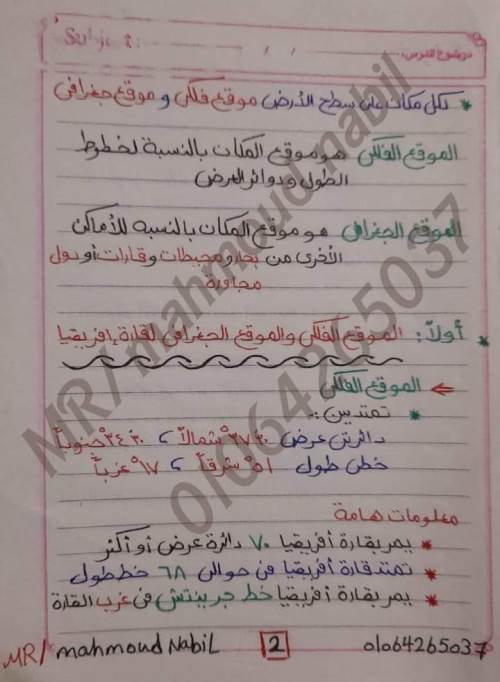 Subject:
موضوع الدرس:
* لكل مكان على سطح الأرض موقع فلكى و موقع جغرافى
الموقع الفلكى هو موقع المكان بالنسبة لخطوط
الطول و دوائر العرض
الموقع الجغرافى هو موقع المكان بالنسبه للأماكن
الأخرى من بحار و محيطات و قارات أو دول
مجاورة
* أولاً: الموقع الفلكى والموقع الجغرافى لقارة إفريقيا
⇐ الموقع الفلكى
* تمتد بين:-
دائرتى عرض ٣٠ ٣٧° شمالاً، ٣٠ ٣٤° جنوباً
خطى طول ٥١° شرقاً، ١٧° غرباً
معلومات هامة
* يمر بقارة أفريقيا ٧٠ دائرة عرض أو أكثر
* تمتد قارة أفريقيا فى حوالى ٦٨ خط طول
* يمر بقارة أفريقيا خط جرينتش فى غرب القارة
MR/ mahmoud Nabil 2 01064265037
MR/ mahmoud nabil
01064265037